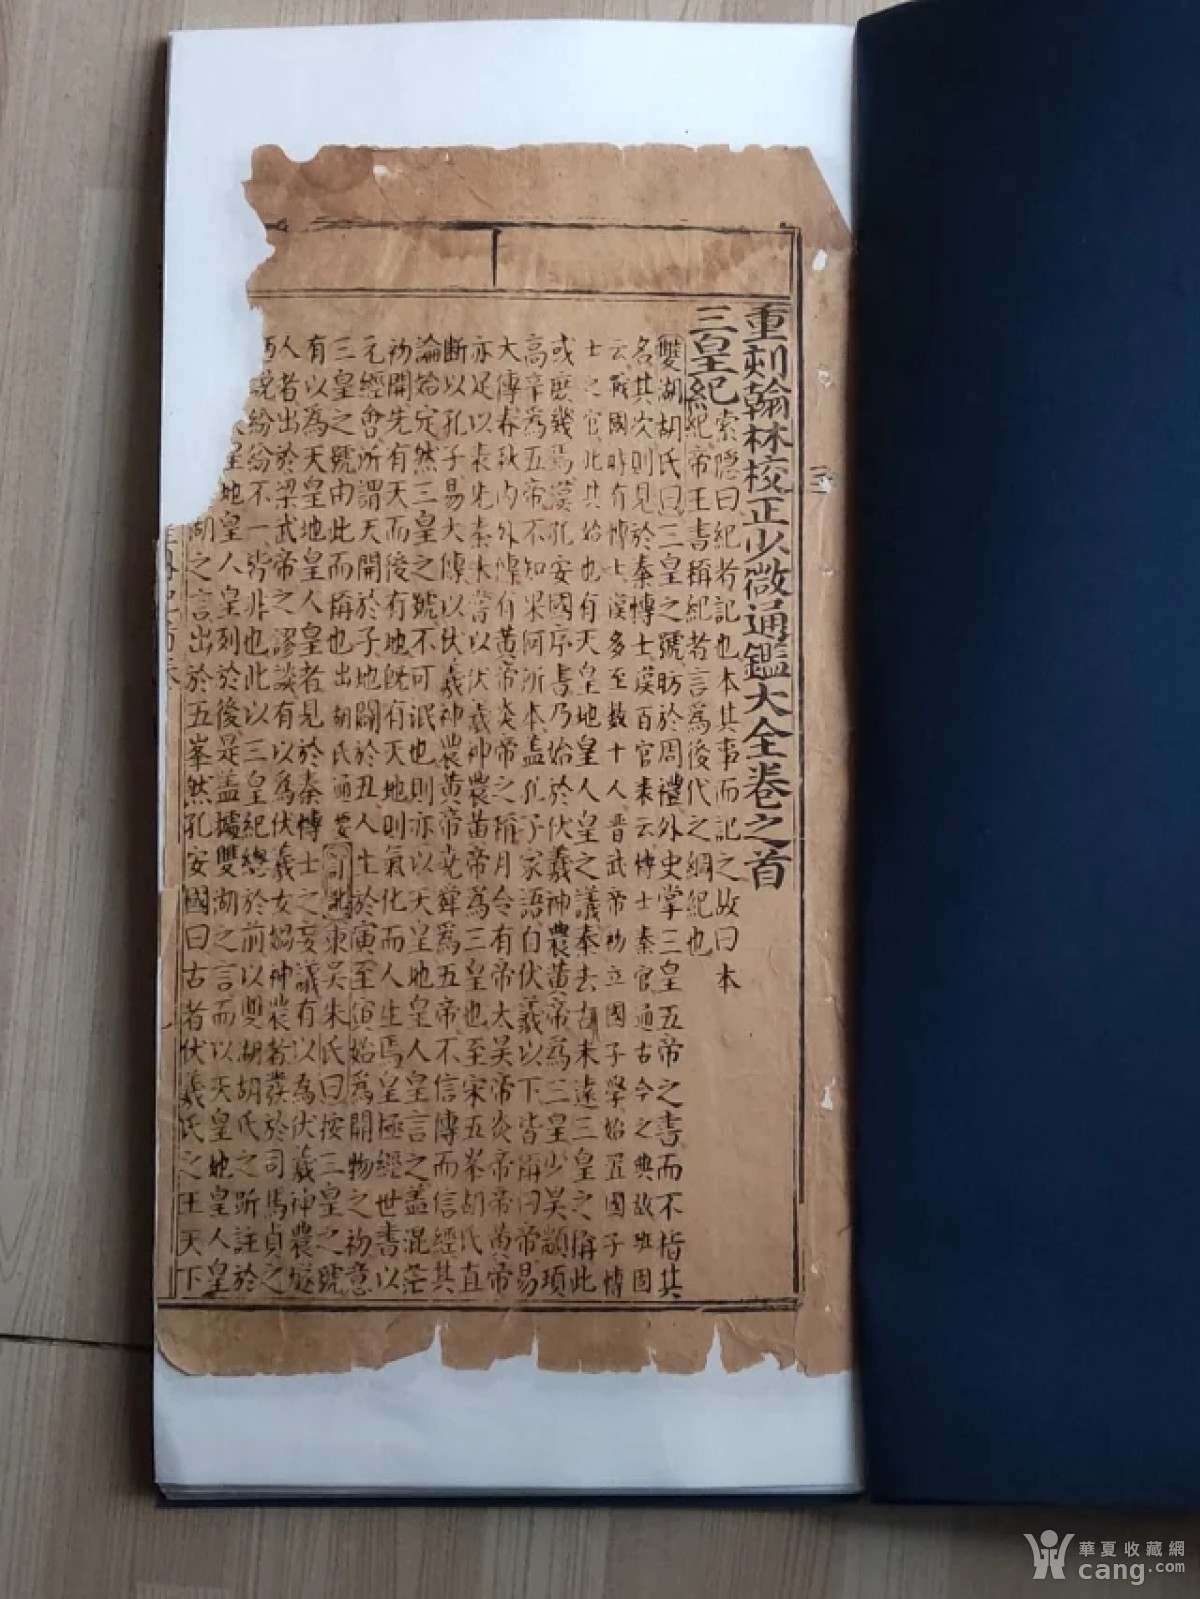 重刻翰林校正少微通鑑大全卷之首
三皇紀
索隱曰紀者記也本其事而記之故曰本
紀帝王書稱紀者言為後代之綱紀也
雙湖胡氏曰三皇之號昉於周禮外史掌三皇五帝之書而不指其
名其次則見於秦博士漢百官表云博士秦官通古今之典故班固
云戰國時有博士漢多至數十人晋武帝初立國子學始置國子博
士之官此其始也有天皇地皇人皇之議秦去古未遠三皇之稱此
或庶幾焉漢孔安國序書乃始於伏羲神農黃帝為三皇少昊顓頊
高辛為五帝不知果何所本盖孔子家語自伏羲以下皆稱曰帝易
大傳春秋內外傳有黃帝炎帝之稱月令有帝太昊帝炎帝帝黃帝
亦足以表先秦未嘗以伏羲神農黃帝為三皇也至宋五峯胡氏直
斷以孔子易大傳以伏羲神農黃帝堯舜為五帝不信傳而信經其
論始定然三皇之號不可泯也則亦以天皇地皇人皇言之盖混茫
初開先有天而後有地既有天地則氣化而人生焉皇極經世書以
元經會所謂天開於子地闢於丑人生於寅至寅始為開物之初意
三皇之號由此而稱也出胡氏通要 東吳朱氏曰按三皇之號
有以為天皇地皇人皇者見於秦博士之妄議有以為伏羲神農燧
人者出於梁武帝之謬談有以為伏羲女媧神農者發於司馬貞之
說紛紛不一皆非也此以三皇紀總於前以雙湖胡氏之所註於
皇地皇人皇列於後是盖據雙湖之言而以天皇地皇人皇
湖之言出於五峯然孔安國曰古者伏羲氏之王天下
華夏收藏網
cang.com